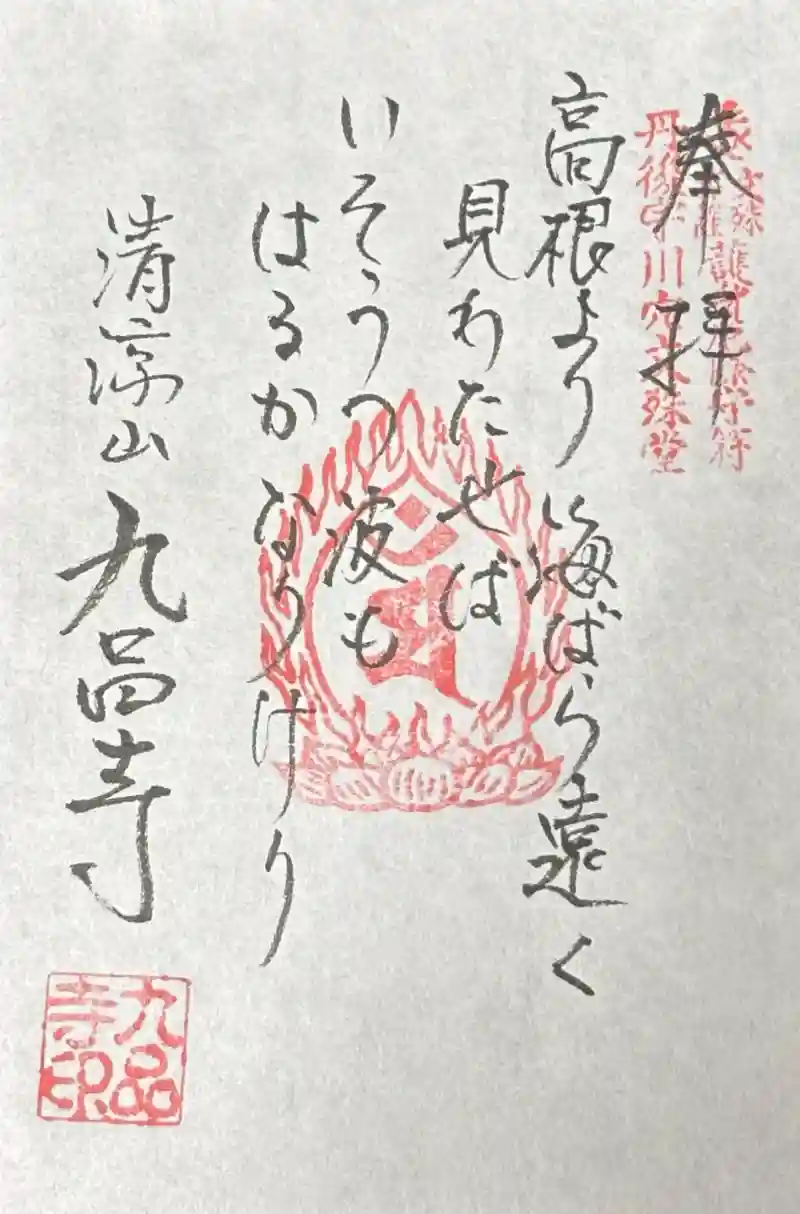 奉拝
丹後宮川穴文殊堂
高根より海ばら遠く
見わたせば
いそうつ波も
はるかなりけり
清涼山 九品寺
九品寺印